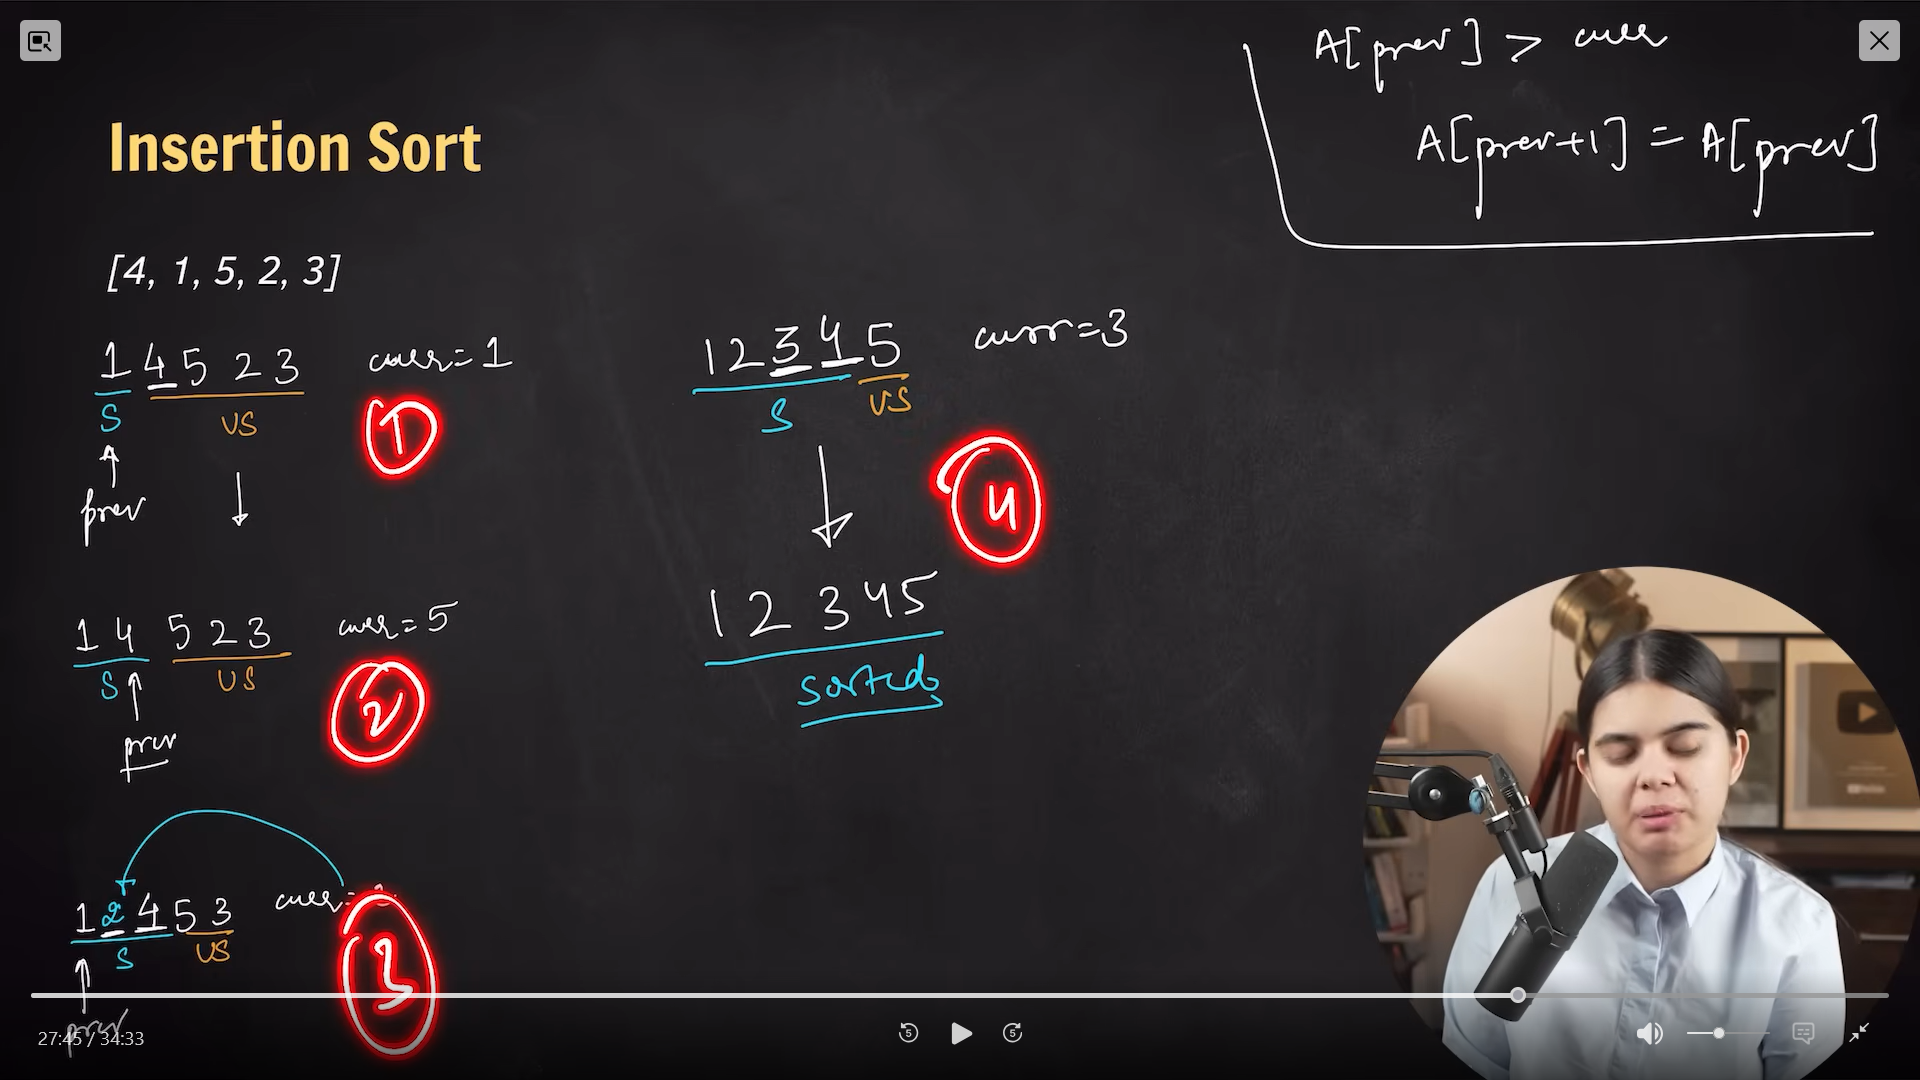 A[prev] > curr
A[prev+1] = A[prev]
Insertion Sort
[4, 1, 5, 2, 3]
1 4 5 2 3 curr=1
S US
1
prev
1 4 5 2 3 curr=5
S US
2
prev
1 2 4 5 3 curr=
S US
3
prev
1 2 3 4 5 curr=3
S US
4
1 2 3 4 5
sorted
27:45 / 34:33
5
5